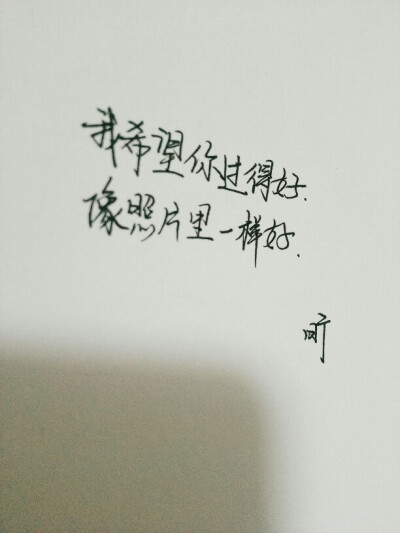 我希望你过得好.
像照片里一样好.
听